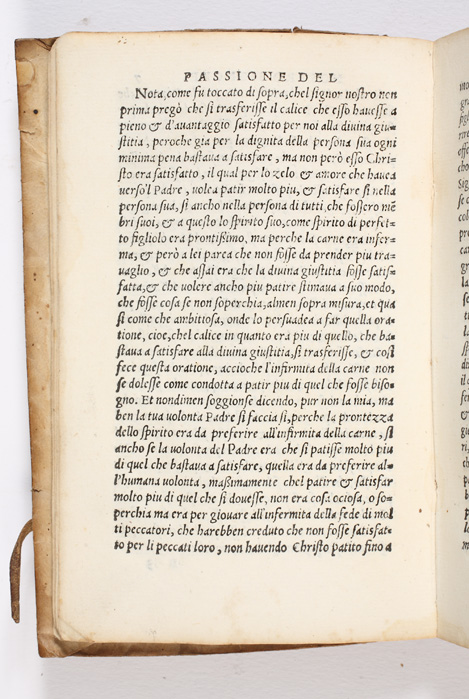 PASSIONE DEL
Nota, come fu toccato di sopra, chel signor nostro non
prima pregò che si trasferisse il calice che esso havesse a
pieno & d'avantaggio satisfatto per noi alla divina giu-
stitia, peroche gia per la dignita della persona sua ogni
minima pena bastava a satisfare, ma non però esso Chri-
sto era satisfatto, il qual per lo zelo & amore che havea
verso'l Padre, volea patir molto piu, & satisfare si nella
persona sua, si ancho nella persona di tutti, che fossero mē
bri suoi, & a questo lo spirito suo, come spirito di perfet-
to figliolo era prontissimo, ma perche la carne era infer-
ma, & però a lei parea che non fosse da prender piu tra-
vaglio, & che assai era che la divina giustitia fosse satis-
fatta, & che volere ancho piu patire stimava a suo modo,
che fosse cosa se non soperchia, almen sopra misura, et qua
si come che ambitiosa, onde lo persuadea a far quella ora-
tione, cioe, chel calice in quanto era piu di quello, che ba-
stava a satisfare alla divina giustitia, si trasferisse, & così
fece questa oratione, accioche l'infirmita della carne non
se dolesse come condotta a patir piu di quel che fosse biso-
gno. Et nondimen soggionse dicendo, pur non la mia, ma
ben la tua volonta Padre si faccia sì, perche la prontezza
dello spirito era da preferire all'infirmita della carne, sì
ancho se la volonta del Padre era che si patisse molto piu
di quel che bastava a satisfare, quella era da preferire al-
l'humana volonta, maßimamente chel patire & satisfar
molto piu di quel che si dovesse, non era cosa ociosa, o so-
perchia ma era per giovare all'infermita della fede di mol
ti peccatori, che harebben creduto che non fosse satisfat-
to per li peccati loro, non havendo Christo patito fino a